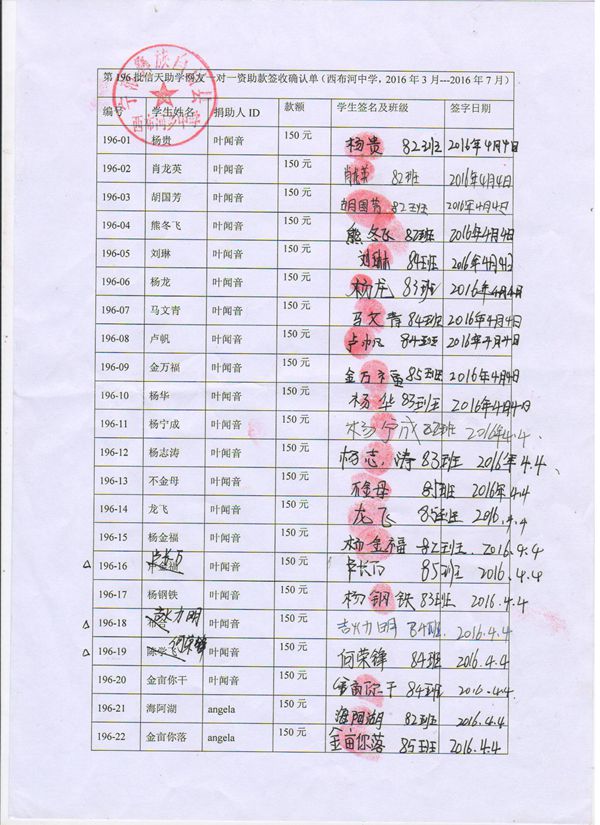 第196批信天助学网友一对一资助款签收确认单（西布河中学，2016年3月---2016年7月）
编号 学生姓名 捐助人ID 款额 学生签名及班级 签字日期
196-01 杨贵 叶闻音 150元 杨贵 82班 2016年4月4日
196-02 肖龙英 叶闻音 150元 肖龙英 82班 2016年4月4日
196-03 胡国芳 叶闻音 150元 胡国芳 82班 2016年4月4日
196-04 熊冬飞 叶闻音 150元 熊冬飞 82班 2016年4月4日
196-05 刘琳 叶闻音 150元 刘琳 84班 2016年4月4日
196-06 杨龙 叶闻音 150元 杨龙 83班 2016年4月4日
196-07 马文青 叶闻音 150元 马文青 84班 2016年4月4日
196-08 卢帆 叶闻音 150元 卢帆 84班 2016年4月4日
196-09 金万福 叶闻音 150元 金万福 85班 2016年4月4日
196-10 杨华 叶闻音 150元 杨华 83班 2016年4月4日
196-11 杨宁成 叶闻音 150元 杨宁成 82班 2016年4.4.
196-12 杨志涛 叶闻音 150元 杨志涛 83班 2016年4.4.
196-13 不金母 叶闻音 150元 不金母 85班 2016年4.4
196-14 龙飞 叶闻音 150元 龙飞 85班 2016.4.4
196-15 杨金福 叶闻音 150元 杨金福 82班 2016.4.4
196-16 卓长万 叶闻音 150元 卓长万 85班 2016.4.4
196-17 杨钢铁 叶闻音 150元 杨钢铁 83班 2016.4.4
196-18 吉火力明 叶闻音 150元 吉火力明 84班 2016.4.4
196-19 陈学飞 何荣锋 叶闻音 150元 何荣锋 84班 2016.4.4
196-20 金亩你干 叶闻音 150元 金亩你干 84班 2016.4.4.
196-21 海阿湖 angela 150元 海阿湖 82班 2016.4.4
196-22 金亩你落 angela 150元 金亩你落 85班 2016.4.4